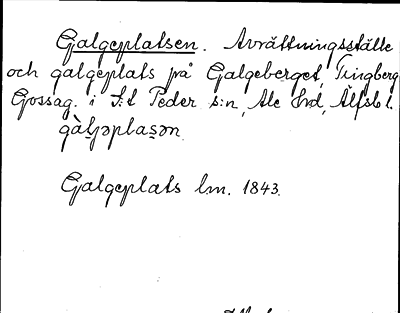 Galgeplatsen. Avrättningsställe
och galgeplats på Galgeberget, Tingberg
Gossag. i S:t Peder s:n, Ale Hrd, Älfsb l.
Galgeplats lm. 1843.